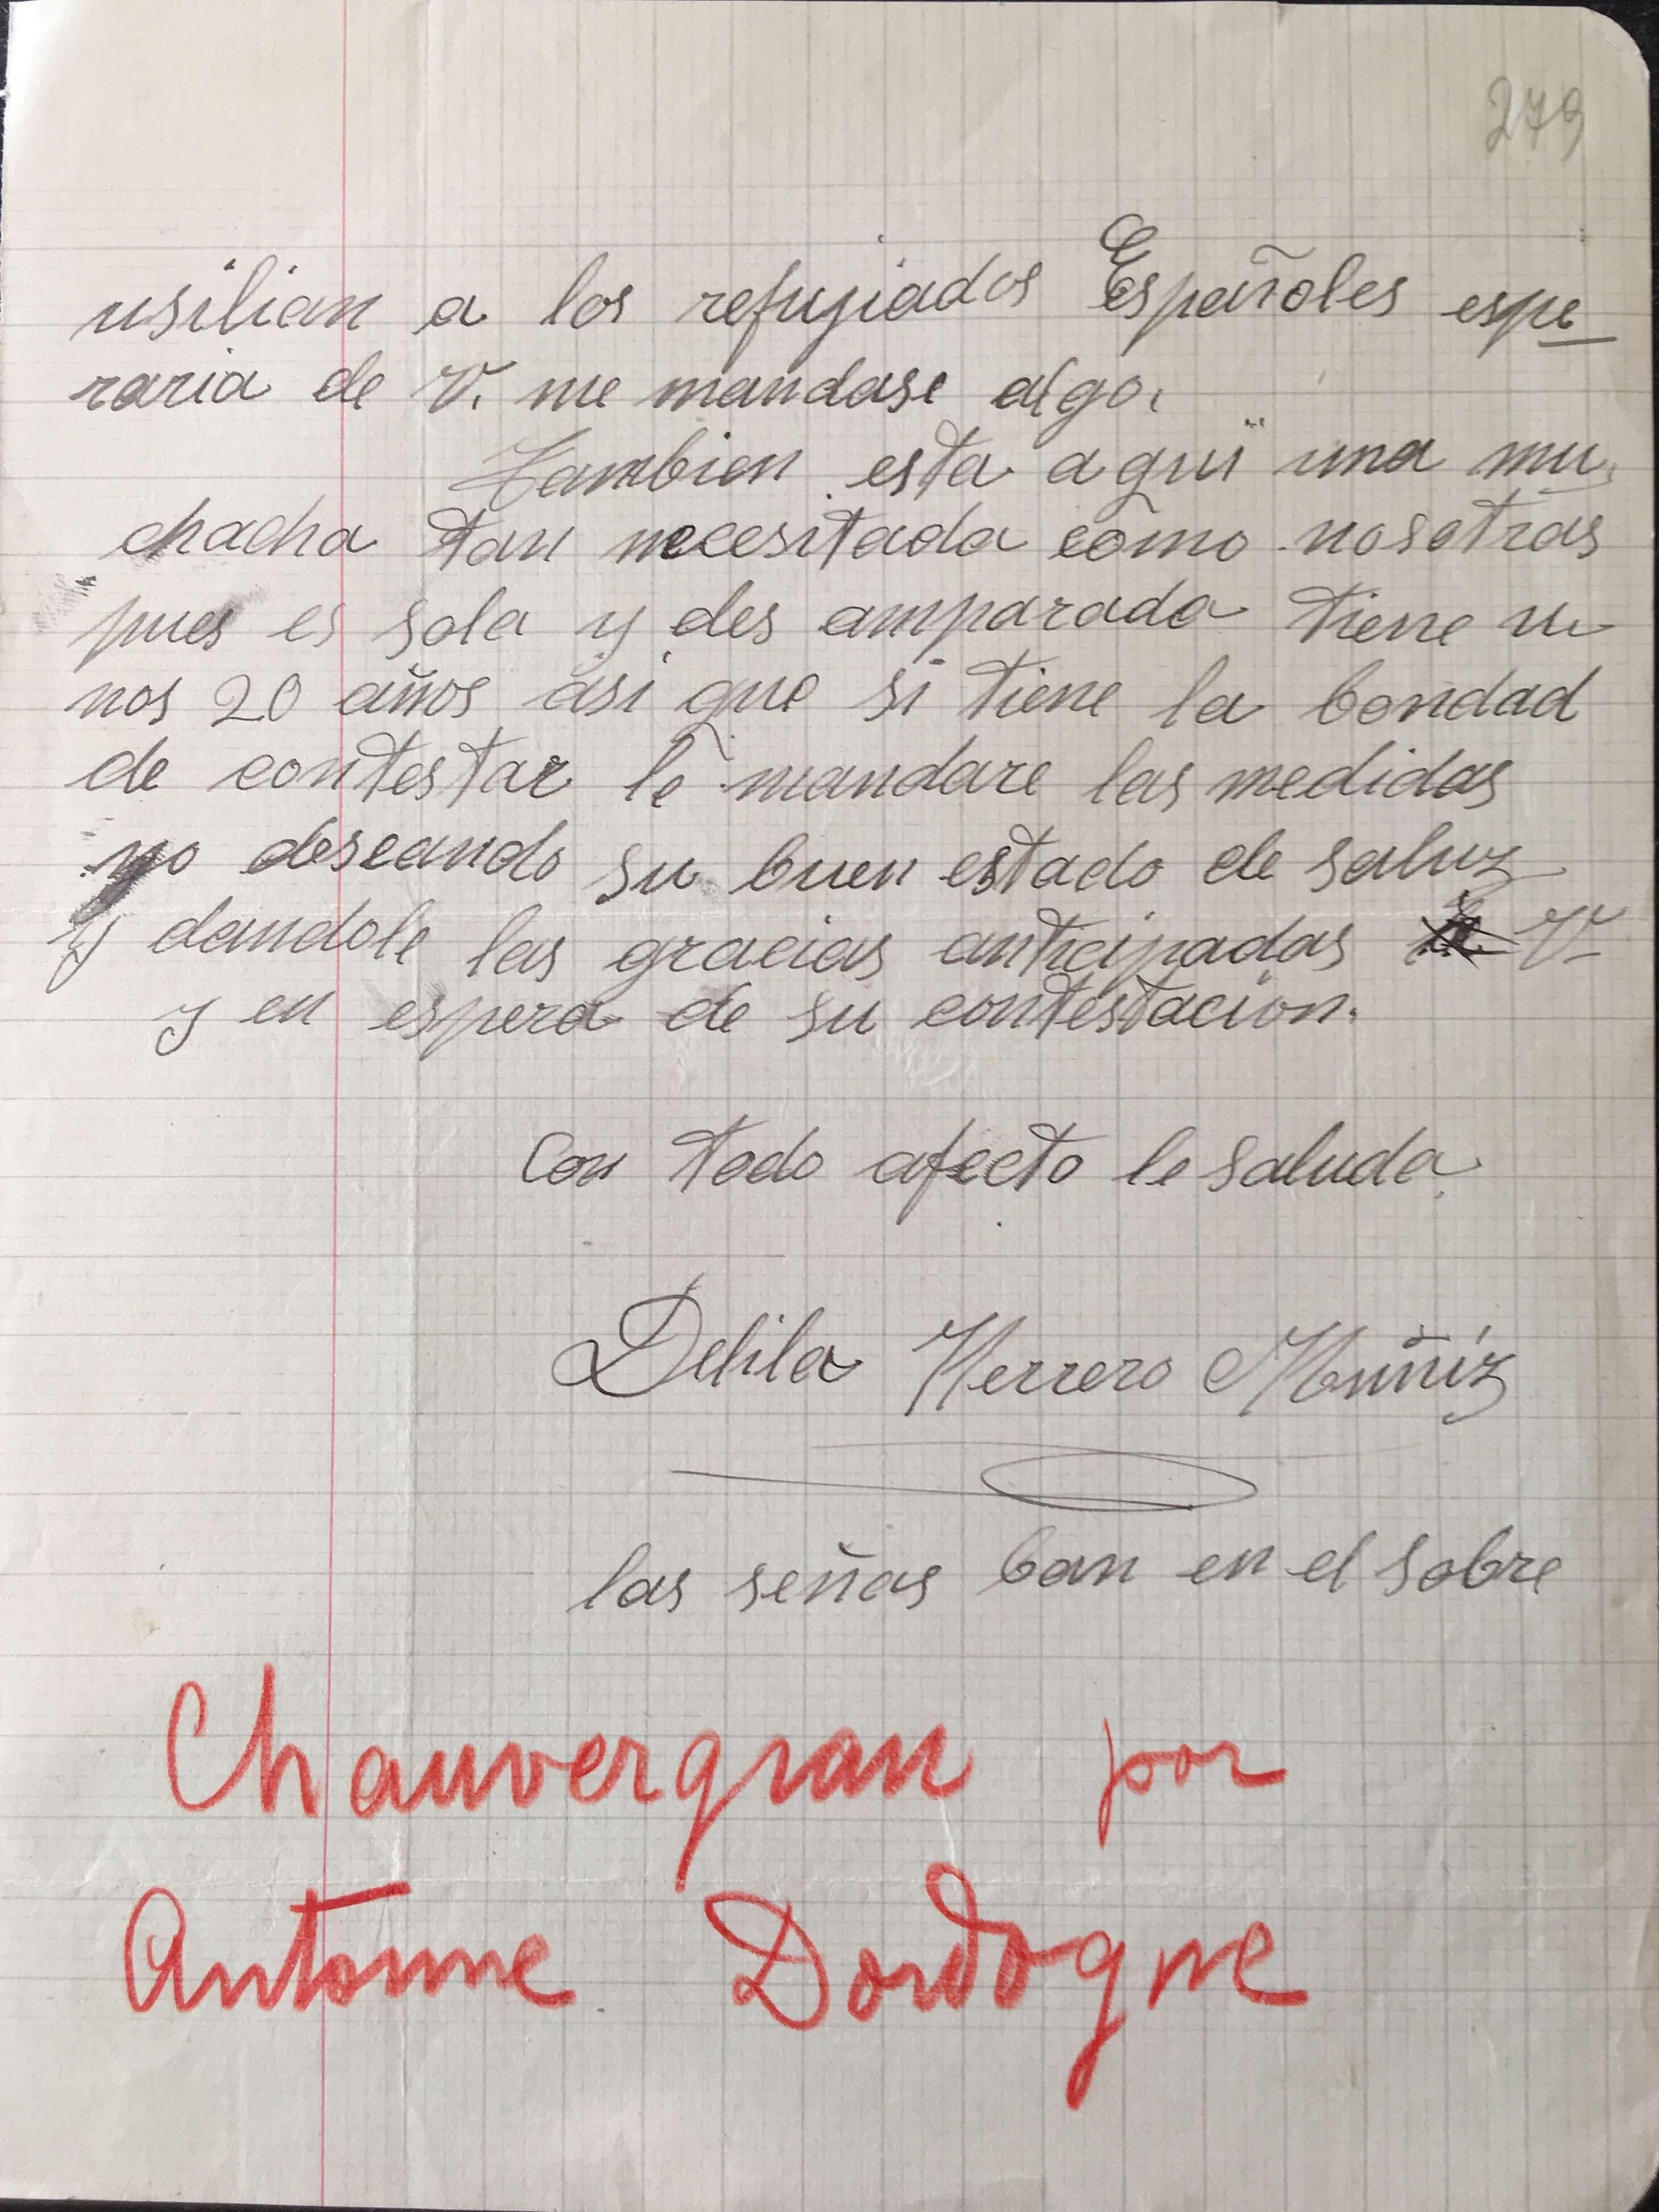 279
usilian a los refujiados Españoles espe
raria de V. me mandase algo.
Tambien esta aqui una mu
chacha tan necesitada como nosotras
pues es sola y des amparada tiene u
nos 20 años asi que si tiene la bondad
de contestar le mandare las medidas
yo deseando su buen estado de saluz
y dandole las gracias anticipadas V.
y en espera de su contestacion.
Con todo afecto le saluda
Delila Herrero Muñiz
las señas ban en el sobre
Chauvergran por
Antonne Dordogne